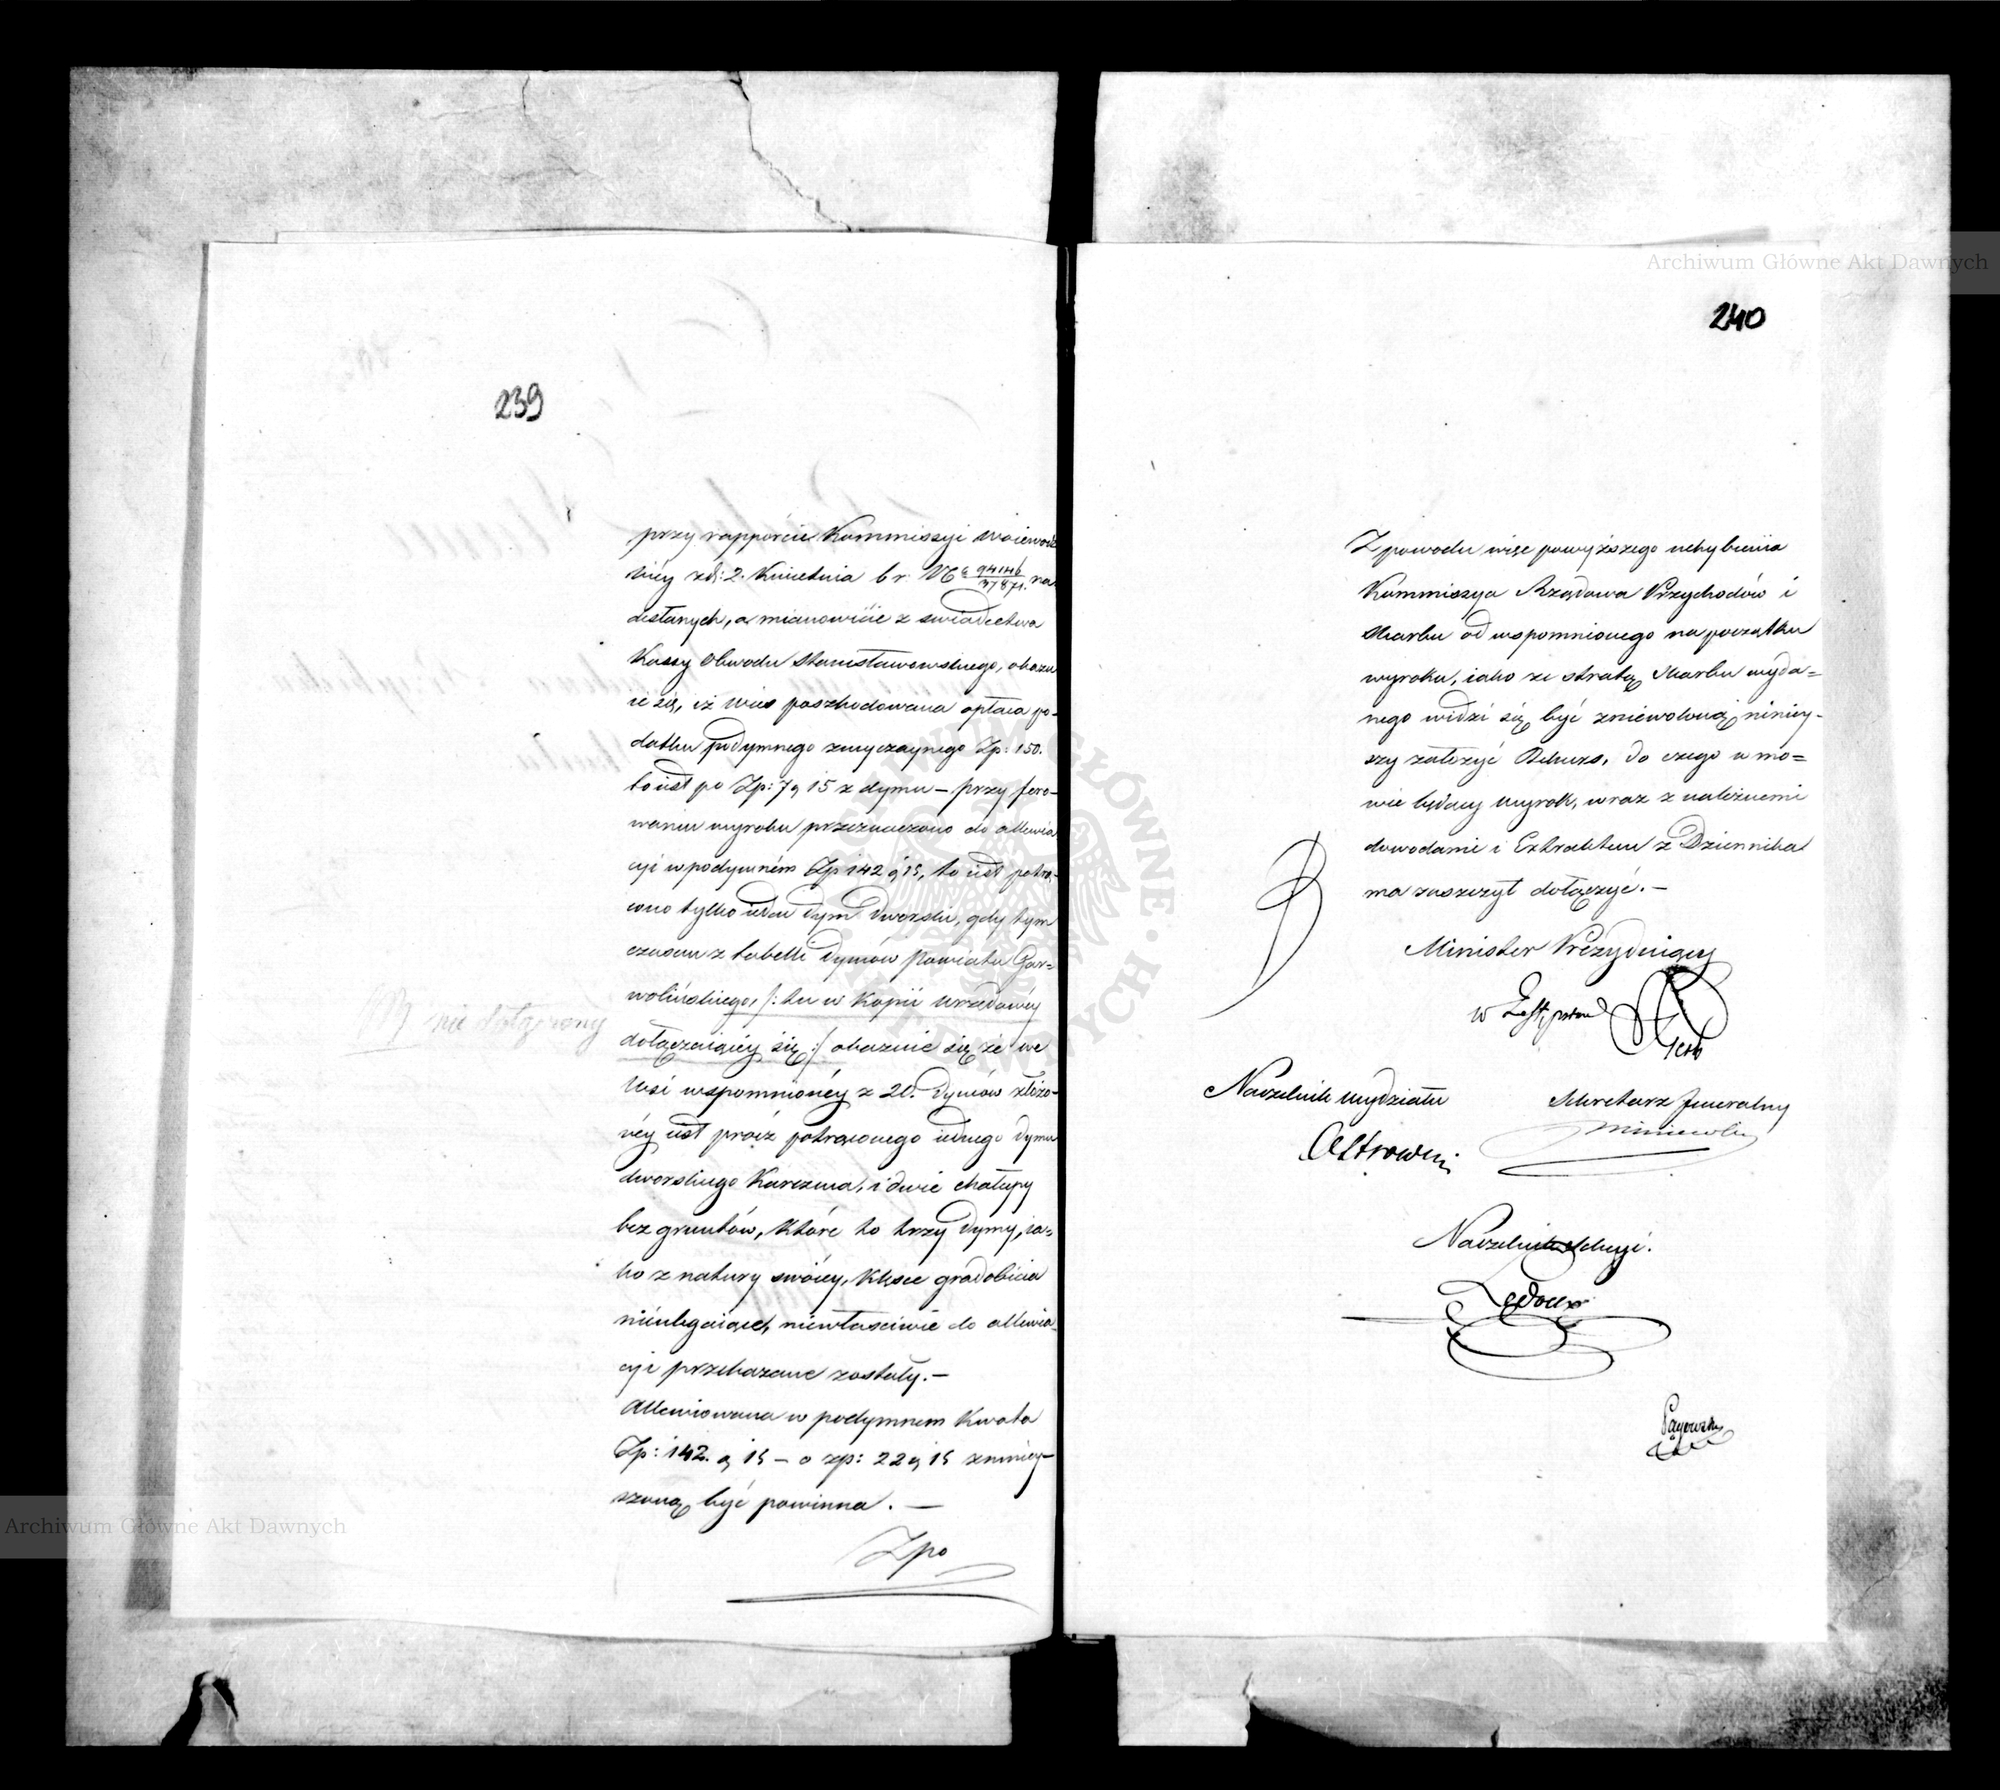 239
przy rapporcie Kommissyi Woiewodz
kiey z d: 2. Kwietnia b r. N 94146/37871. na
desłanych, a mianowicie z swiadectwa
Kassy Obwodu Stanisławowskiego, okazu
ie się, iż Wies poszkodowana opłaca po-
datku podymnego zwyczaynego Zp: 150.
to iest po Zp: 7 g 15 z dymu – przy fero-
waniu wyroku przeznaczono do allewia
cyi w podymném Zp 142 g 15, to iest potrą-
cono tylko ieden Dym Dworski, gdy tym
czasem z tabelli Dymów Powiatu Gar=
wolińskiego, /: tu w Kopii urzędowéy
dołączaiącéy się :/ okazuie się że we
Wsi wspomnionéy z 20. Dymów złożo-
néy iest prócz potrąconego iednego Dymu
dworskiego Karczma, i dwie chałupy
bez gruntów, które to trzy Dymy, ia=
ko z natury swoiey, klęsce gradobicia
nieulegaiące, niewłasciwie do allewia-
cyi przekazane zostały. –
Allewiowana w podymnem kwota
Zp: 142. g 15 – o zp: 22 g 15 zmniey-
szoną być powinna. —
Zpo
nie dołączony
240
Z powodu więc powyższego uchybienia
Kommissya Rządowa Przychodów i
Skarbu od wspomnionego na początku
wyroku, iako ze stratą Skarbu wyda=
nego widzi się być zniewoloną niniey-
szy założyć Rekurs, do czego w mo=
wie będący wyrok, wraz z należnemi
dowodami i Extraktem z Dziennika
ma zaszczyt dołączyć. –
Minister Prezyduiący
w Zastępstwie
Naczelnik wydziału
Sekretarz Jeneralny
Ostrowski
Naczelnik Sekcyi.
Archiwum Główne Akt Dawnych
Archiwum Główne Akt Dawnych